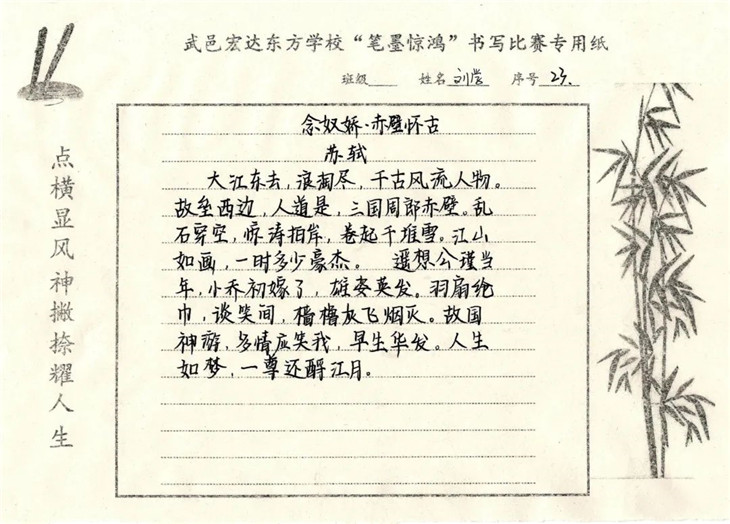 武邑宏达东方学校“笔墨惊鸿”书写比赛专用纸
班级 姓名 刘莹 序号 23.
点横显风神撇捺耀人生
念奴娇·赤壁怀古
苏轼
大江东去，浪淘尽，千古风流人物。
故垒西边，人道是，三国周郎赤壁。乱
石穿空，惊涛拍岸，卷起千堆雪。江山
如画，一时多少豪杰。 遥想公瑾当
年，小乔初嫁了，雄姿英发。羽扇纶
巾，谈笑间，樯橹灰飞烟灭。故国
神游，多情应笑我，早生华发。人生
如梦，一尊还酹江月。